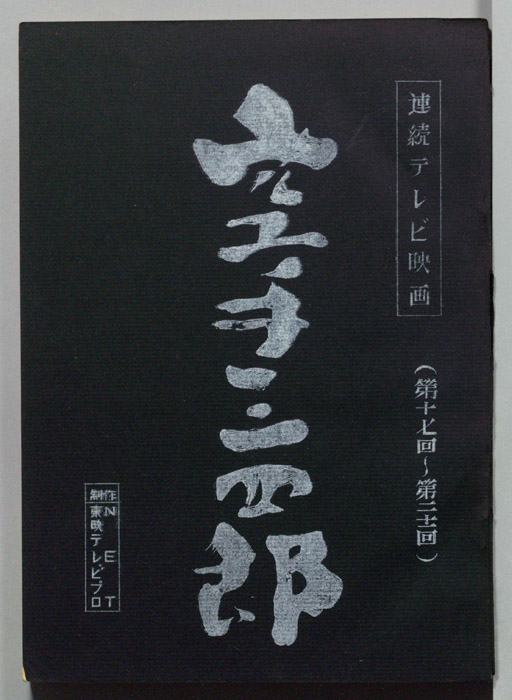 連続テレビ映画
(第十七回〜第二十一回)
空手三四郎
制作
NET
東映テレビプロ